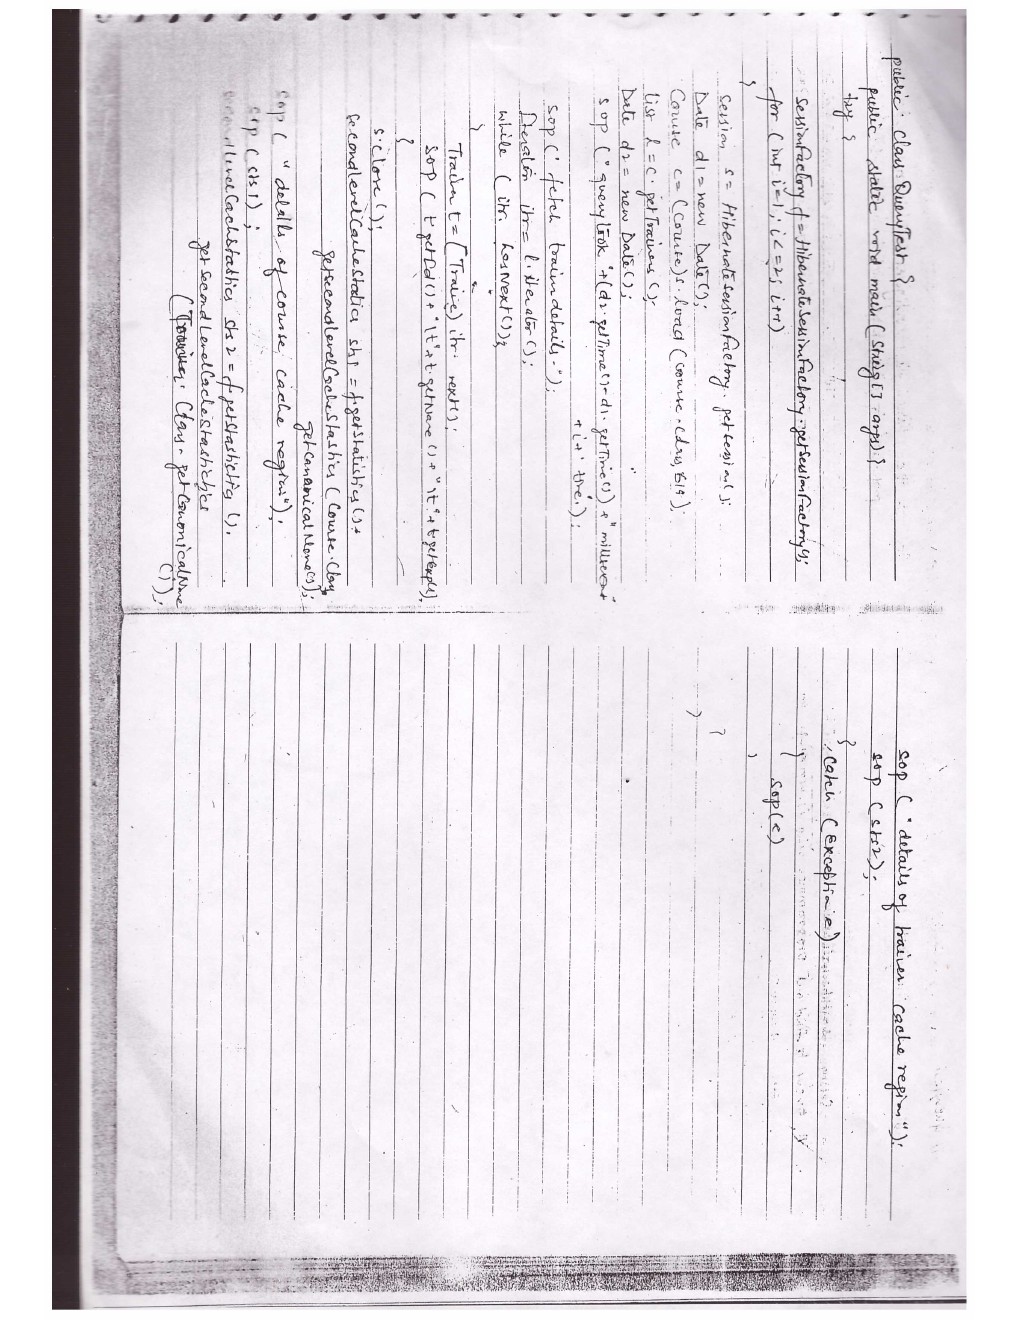 public class QueryTest {
public static void main (String[] args) {
try {
SessionFactory f = HibernateSessionFactory.getSessionFactory();
for (int i=1; i<=2; i++)
{
Session s = HibernateSessionFactory.getSession();
Date d1 = new Date();
Course c = (Course) s.load (Course.class,
List l = c.getTrainers ();
Date d2 = new Date();
sop ("query took "+(d2.getTime()-d1.getTime()) + "
+ i +
sop (" fetch train details.");
Iterator itr = l.iterator ();
while ( itr. hasNext());
{
Trainer t = (Trainer) itr. next();
sop ( t.getId() + "\t" + t.getName () + "\t" + t.getExp());
}
s.close ();
SecondLevelCacheStatics sts1 = f.getStatistics ()+
getSecondLevelCacheStastics (Course.Class
getCanonicalName());
sop ( " details of course cache region");
sop ( sts1 );
SecondLevelCacheStastics sts2 = f.getStastictics ().
getSecondLevelCacheStastictics
(Trainer. Class. getCanonicalName
());
sop ( "details of trainer cache region");
sop (sts2);
}
catch (Exception e)
}
sop(e)
}
}
}